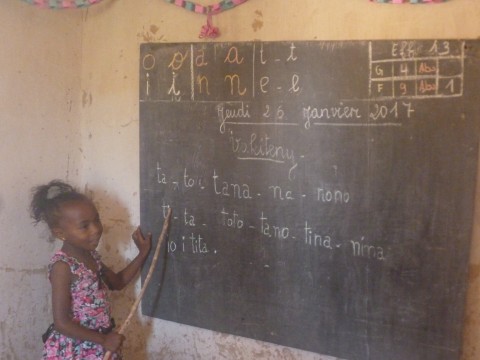 o o a a t - t
i i n n e - e
Eff 13
G 4 Abs
F 9 Abs 1
Jeudi 26 janvier 2017
Vakiteny -
ta - to i tana - na - nono
ti - ta - toto - tano - tina - nina
no i tita .